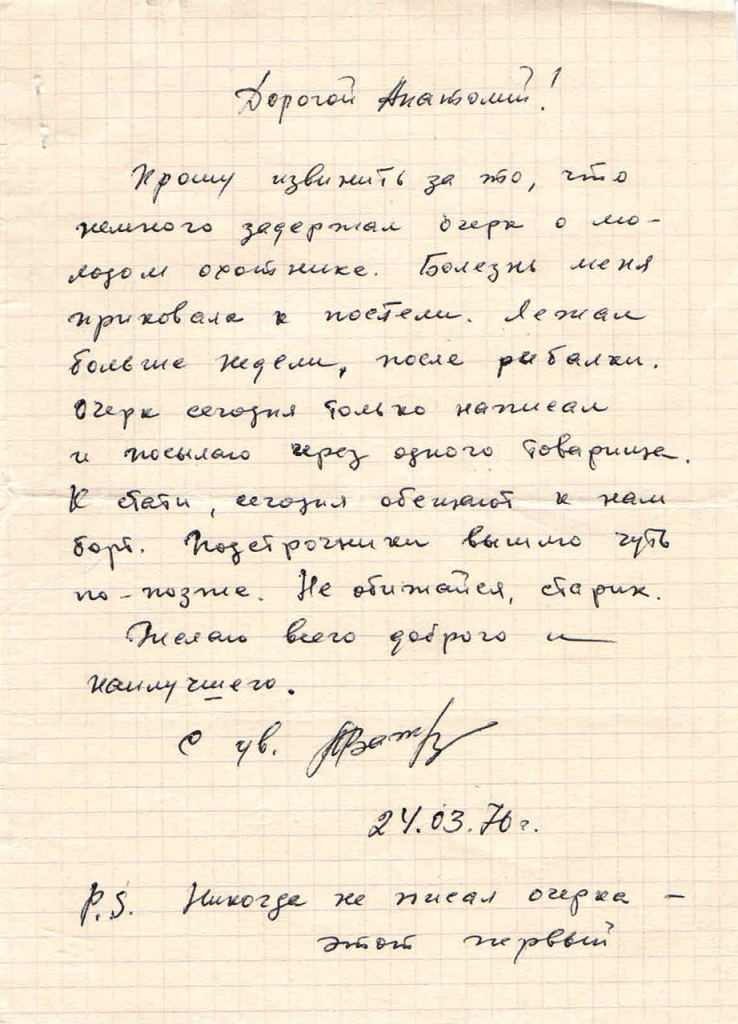 Дорогой Анатолий!
Прошу извинить за то, что
немного задержал очерк о мо-
лодом охотнике. Болезнь меня
приковала к постели. Лежал
больше недели, после рыбалки.
Очерк сегодня только написал
и посылаю через одного товарища.
К стати, сегодня обещают к нам
борт. Подстрочники вышлю чуть
по-позже. Не обижайся, старик.
Желаю всего доброго и
наилучшего.
С ув.
24.03.76г.
P.S. Никогда не писал очерка –
этот первый